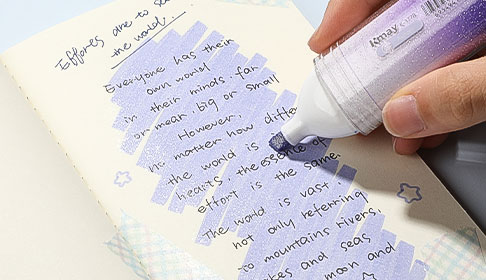 Efforts are to see
the world.
Everyone has their
own world
in their minds, far
or near, big or small
However,
no matter how differ
the world is
hearts, the essence of
effort is the same.
The world is vast.
not only referring
to mountains rivers.
lakes and seas
moon and